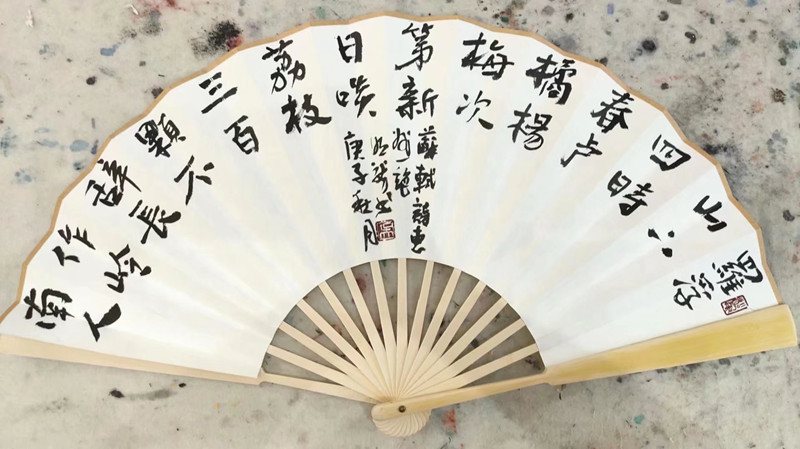 羅浮
山下
四時
春卢
橘楊
梅次
第新
日啖
荔枝
三百
顆不
辞長
作岭
南人
蘇軾詩惠
州
庚子秋月